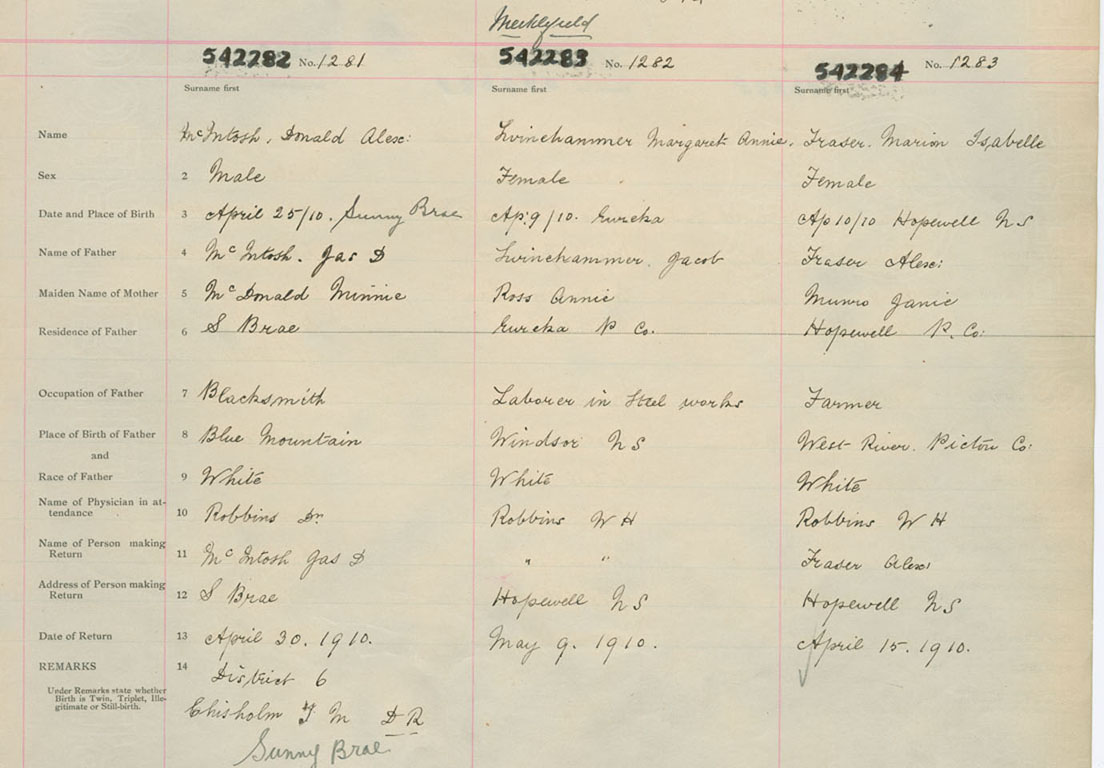 Merklyfield
542282 No. 1281 542283 No. 1282 542284 No. 1283
Surname first Surname first Surname first
Name McIntosh, Donald Alex: Swinehammer Margaret Annie. Fraser. Marion Isabelle
Sex 2 Male Female Female
Date and Place of Birth 3 April 25/10. Sunny Brae Ap: 9/10. Eureka Ap 10/10 Hopewell N S
Name of Father 4 McIntosh. Jas D Swinehammer. Jacob Fraser Alex:
Maiden Name of Mother 5 McDonald Minnie Ross Annie Munro Janie
Residence of Father 6 S Brae Eureka P Co. Hopewell P. Co:
Occupation of Father 7 Blacksmith Laborer in Steel works Farmer
Place of Birth of Father 8 Blue Mountain Windsor N S West River. Pictou Co:
and
Race of Father 9 White White White
Name of Physician in at-
tendance 10 Robbins Dr. Robbins W H Robbins W H
Name of Person making
Return 11 McIntosh Jas D " " Fraser Alex:
Address of Person making
Return 12 S Brae Hopewell N S Hopewell N S
Date of Return 13 April 30. 1910. May 9. 1910. April 15. 1910.
REMARKS 14 District 6
Under Remarks state whether
Birth is Twin, Triplet, Ille-
gitimate or Still-birth.
Chisholm J M D R
Sunny Brae